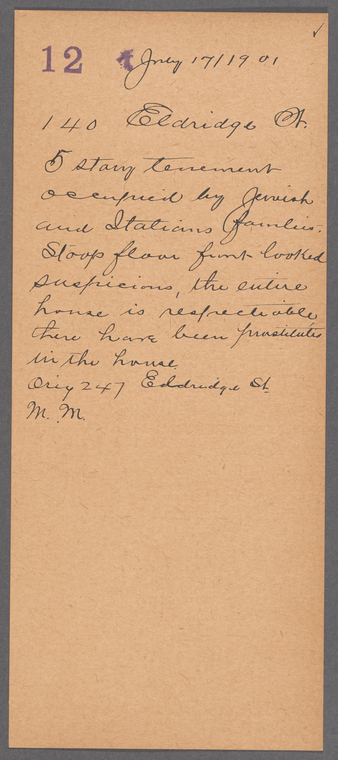 12 July 17/1901
140 Eldridge St.
5 story tenement
occupied by Jewish
and Italians families.
Stoop floor front looked
suspicious, the entire
house is respectiable
there have been prostitutes
in the house.
Orig 247 Eldridge St.
M. M.